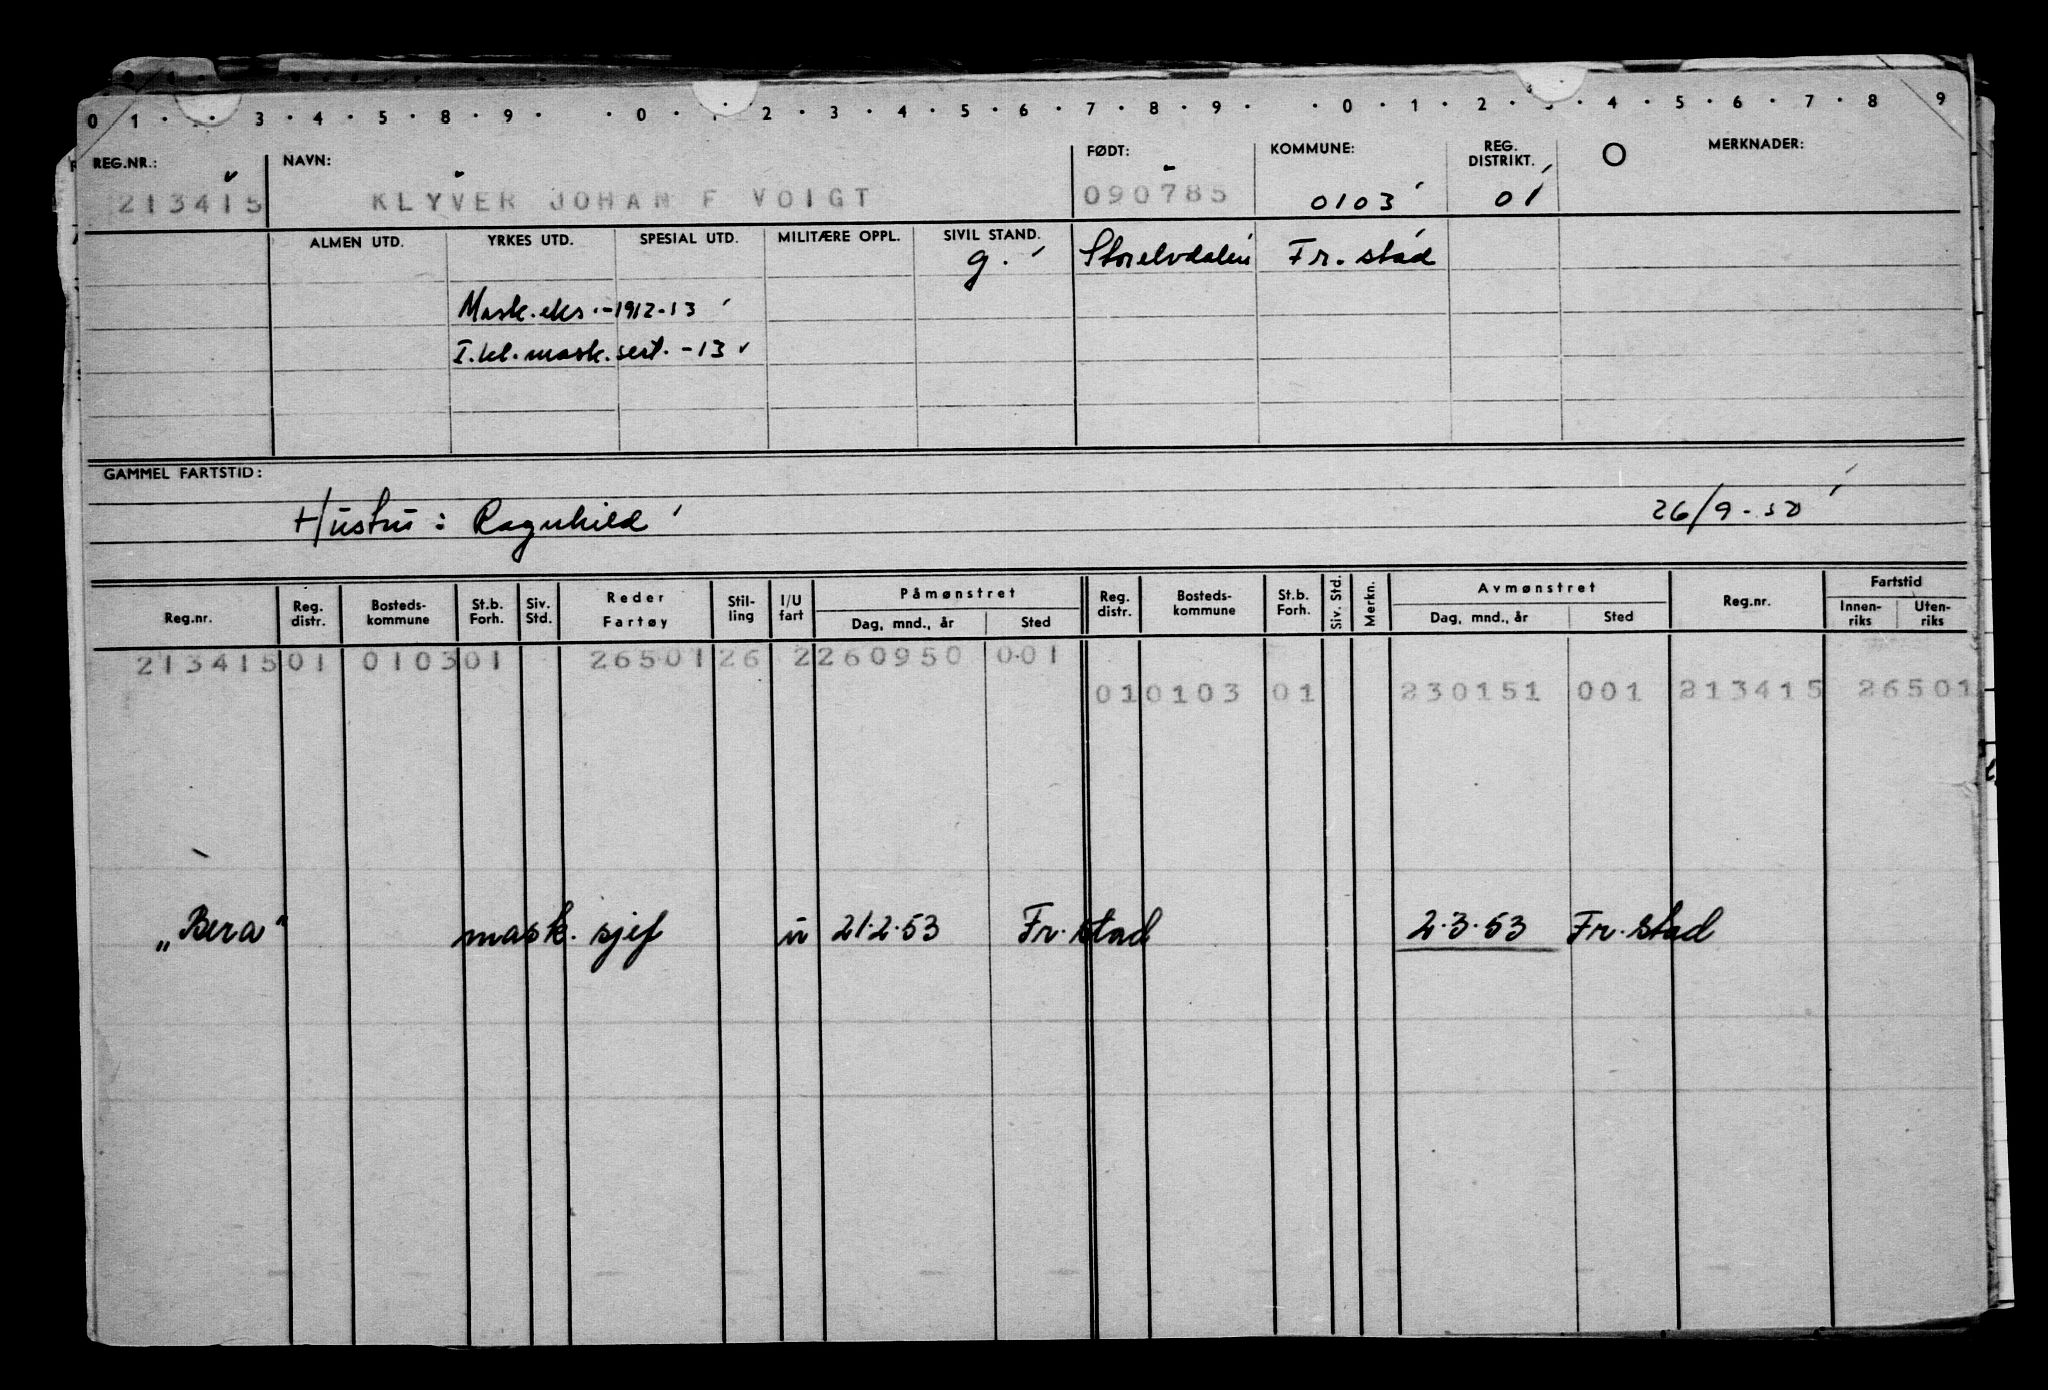 0 1 . . . 3 . 4 . 5 . 8 . 9 . . 0 . . 2 . 3 . 4 . 5 . 6 . 7 . 8 . 9 . . 0 . 1 . 2 . 3 . 4 . 5 . 6 . 7 . 8 9
REG.NR.: NAVN: FØDT: KOMMUNE: REG. DISTRIKT. O MERKNADER:
213415 KLYVER JOHAN F VOIGT 090785 0103 01
ALMEN UTD. YRKES UTD. SPESIAL UTD. MILITÆRE OPPL. SIVIL STAND.
g. Storelvdalen Fr.stad
Mask.eks.-1912-13
I.kl.mask.sert.-13
GAMMEL FARTSTID:
Hustru: Ragnhild 26/9-50
Reg.nr. Reg. distr. Bosteds- kommune St.b. Forh. Siv. Std. Reder Fartøy Stil- ling I/U fart Påmønstret Dag, mnd., år Sted Reg. distr. Bosteds- kommune St.b. Forh. Siv. Std. Merkn. Avmønstret Dag, mnd., år Sted Reg.nr. Fartstid Innen- riks Uten- riks
213415 01 0103 01 26501 26 2 260950 001
01 0103 01 230151 001 213415 26501
„Bera" mask.sjef u 21.2.53 Fr.stad 2.3.53 Fr.stad